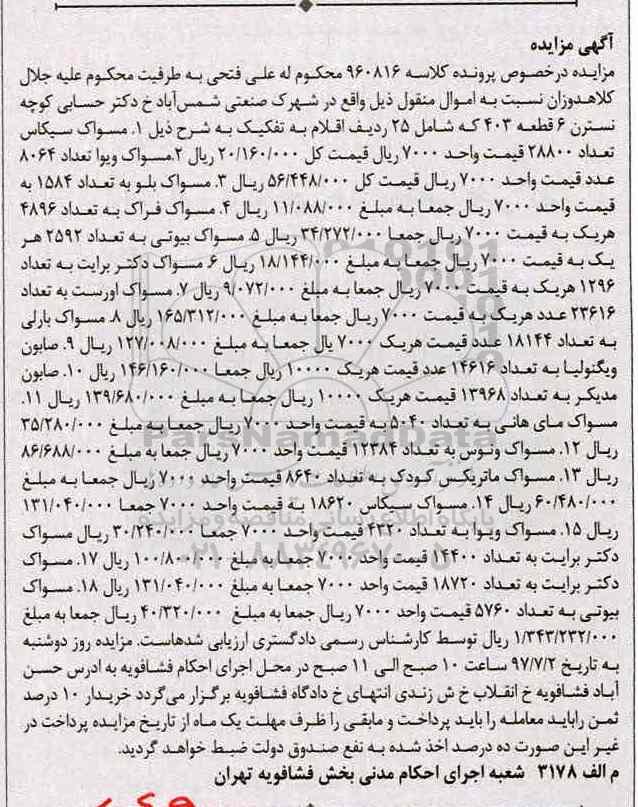 آگهی مزایده
مزایده درخصوص پرونده کلاسه ۹۶۰۸۱۶ محکوم له علی فتحی به طرفیت محکوم علیه جلال
کلاهدوزان نسبت به اموال منقول ذیل واقع در شهرک صنعتی شمس‌آباد خ دکتر حسابی کوچه
نسترن ۶ قطعه ۴۰۳ که شامل ۲۵ ردیف اقلام به تفکیک به شرح ذیل ۱. مسواک سیکاس
تعداد ۲۸۸۰۰ قیمت واحد ۷۰۰۰ ریال قیمت کل ۲۰/۱۶۰/۰۰۰ ریال ۲.مسواک ویوا تعداد ۸۰۶۴
عدد قیمت واحد ۷۰۰۰ ریال قیمت کل ۵۶/۴۴۸/۰۰۰ ریال ۳. مسواک بلو به تعداد ۱۵۸۴ به
قیمت واحد ۷۰۰۰ ریال جمعا به مبلغ ۱۱/۰۸۸/۰۰۰ ریال ۴. مسواک فراک به تعداد ۴۸۹۶
هریک به قیمت ۷۰۰۰ ریال جمعا ۳۴/۲۷۲/۰۰۰ ریال ۵. مسواک بیوتی به تعداد ۲۵۹۲ هر
یک به قیمت ۷۰۰۰ ریال جمعا به مبلغ ۱۸/۱۴۴/۰۰۰ ریال ۶. مسواک دکتر برایت به تعداد
۱۲۹۶ هریک به قیمت ۷۰۰۰ ریال جمعا به مبلغ ۹/۰۷۲/۰۰۰ ریال ۷. مسواک اورست به تعداد
۲۳۶۱۶ عدد هریک به قیمت ۷۰۰۰ ریال جمعا به مبلغ ۱۶۵/۳۱۲/۰۰۰ ریال ۸. مسواک بارلی
به تعداد ۱۸۱۴۴ عدد قیمت هریک ۷۰۰۰ یال جمعا به مبلغ ۱۲۷/۰۰۸/۰۰۰ ریال ۹. صابون
ویگنولیا به تعداد ۱۴۶۱۶ عدد قیمت هریک ۱۰۰۰۰ ریال جمعا ۱۴۶/۱۶۰/۰۰۰ ریال ۱۰. صابون
مدیکر به تعداد ۱۳۹۶۸ قیمت هریک ۱۰۰۰۰ ریال جمعا به مبلغ ۱۳۹/۶۸۰/۰۰۰ ریال ۱۱.
مسواک مای هانی به تعداد ۵۰۴۰ به قیمت واحد ۷۰۰۰ ریال جمعا به مبلغ ۳۵/۲۸۰/۰۰۰
ریال ۱۲. مسواک ونوس به تعداد ۱۲۳۸۴ قیمت واحد ۷۰۰۰ ریال جمعا به مبلغ ۸۶/۶۸۸/۰۰۰
ریال ۱۳. مسواک ماتریکس کودک به تعداد ۸۶۴۰ قیمت واحد ۷۰۰۰ ریال جمعا به مبلغ
۶۰/۴۸۰/۰۰۰ ریال ۱۴. مسواک سیکاس ۱۸۶۲۰ به قیمت واحد ۷۰۰۰ جمعا ۱۳۱/۰۴۰/۰۰۰
ریال ۱۵. مسواک ویوا به تعداد ۴۳۲۰ قیمت واحد ۷۰۰۰ جمعا ۳۰/۲۴۰/۰۰۰ ریال مسواک
دکتر برایت به تعداد ۱۴۴۰۰ قیمت واحد ۷۰۰۰ جمعا به مبلغ ۱۰۰/۸۰۰/۰۰۰ ریال ۱۷. مسواک
دکتر برایت به تعداد ۱۸۷۲۰ قیمت واحد ۷۰۰۰ جمعا به مبلغ ۱۳۱/۰۴۰/۰۰۰ ریال ۱۸. مسواک
بیوتی به تعداد ۵۷۶۰ قیمت واحد ۷۰۰۰ ریال جمعا به مبلغ ۴۰/۳۲۰/۰۰۰ ریال جمعا به مبلغ
۱/۳۴۳/۲۳۲/۰۰۰ ریال توسط کارشناس رسمی دادگستری ارزیابی شدهاست. مزایده روز دوشنبه
به تاریخ ۹۷/۷/۲ ساعت ۱۰ صبح الی ۱۱ صبح در محل اجرای احکام فشافویه به ادرس حسن
آباد فشافویه خ انقلاب خ ش زندی انتهای خ دادگاه فشافویه برگزار می‌گردد خریدار ۱۰ درصد
ثمن راباید معامله را باید پرداخت و مابقی را ظرف مهلت یک ماه از تاریخ مزایده پرداخت در
غیر این صورت ده درصد اخذ شده به نفع صندوق دولت ضبط خواهد گردید.
م الف ۳۱۷۸ شعبه اجرای احکام مدنی بخش فشافویه تهران
ParsNamadData
پایگاه اطلاع رسانی مناقصه و مزایده